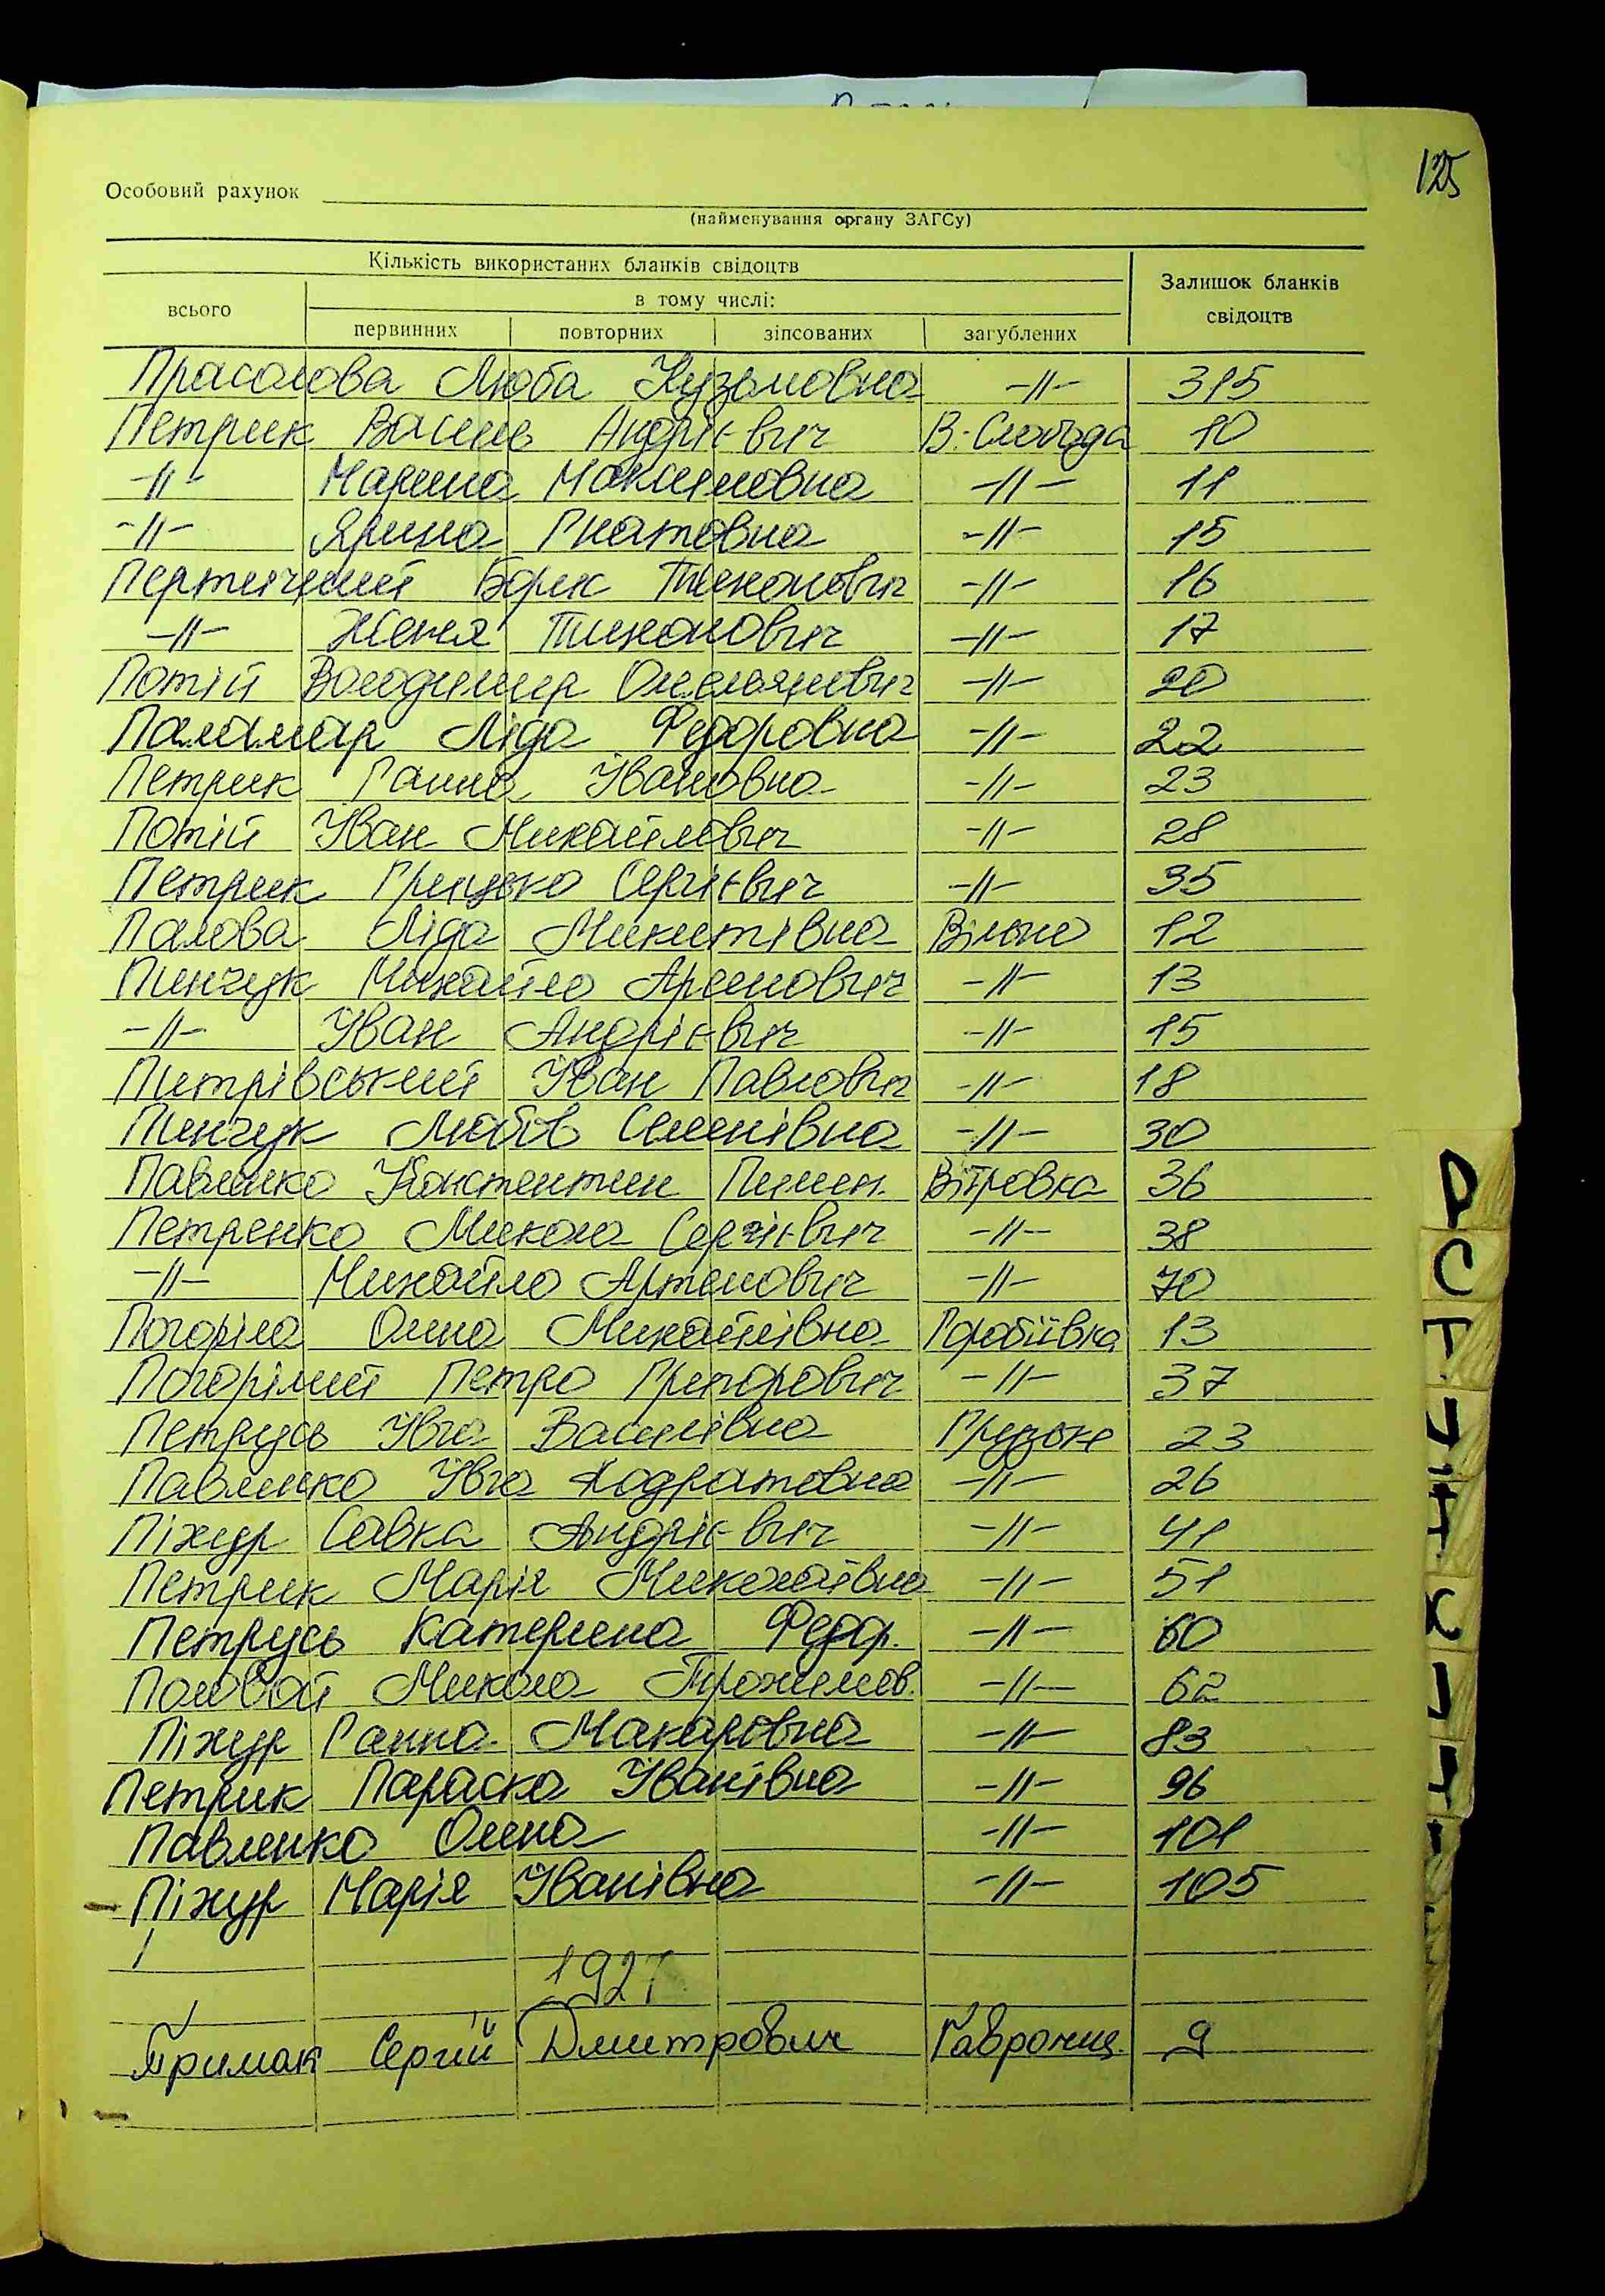 125
Особовий рахунок
(найменування органу ЗАГСу)
Кількість використаних бланків свідоцтв
Залишок бланків свідоцтв
всього
в тому числі:
первинних повторних зіпсованих загублених
Прасолова Люба Кузьмовна -//- 315
Петрик Василь Андрієвич В-Слобода 10
-//- Марина Максимовна -//- 11
-//- Ярина Гнатовна -//- 15
Борис Тихонович -//- 16
-//- Женя Тихонович -//- 17
Потій Володимир Омелянович -//- 20
Паламар Ліда Федоровна -//- 22
Петрик Ганна Івановна -//- 23
Потій Іван Михайлович -//- 28
Петрик Грицько Сергієвич -//- 35
Палова Ліда Микитівна Вільна 12
Пинчук Михайло Арсенович -//- 13
-//- Іван Андрієвич -//- 15
Питрівський Іван Павлович -//- 18
Пинчук Любов Семенівна -//- 30
Павленко Константин Пимен. Вітровка 36
Петренко Микола Сергієвич -//- 38
-//- Михайло Артемович -//- 70
Погоріла Олена Михайлівна Горобіївка 13
Погорілий Петро Григорович -//- 37
Петрусь Івга Василівна Грузьке 23
Павленко Івга Кодратовна -//- 26
Піжур Савка Андрієвич -//- 41
Петрик Марія Миколаївна -//- 51
Петрусь Катерина Федор. -//- 60
Микола Трохимов. -//- 62
Піжур Ганна Макаровна -//- 83
Петрик Параска Іванівна -//- 96
Павленко Олена -//- 101
Піжур Марія Іванівна -//- 105
1927
Примак Сергій Дмитрович Гавронщ. 9